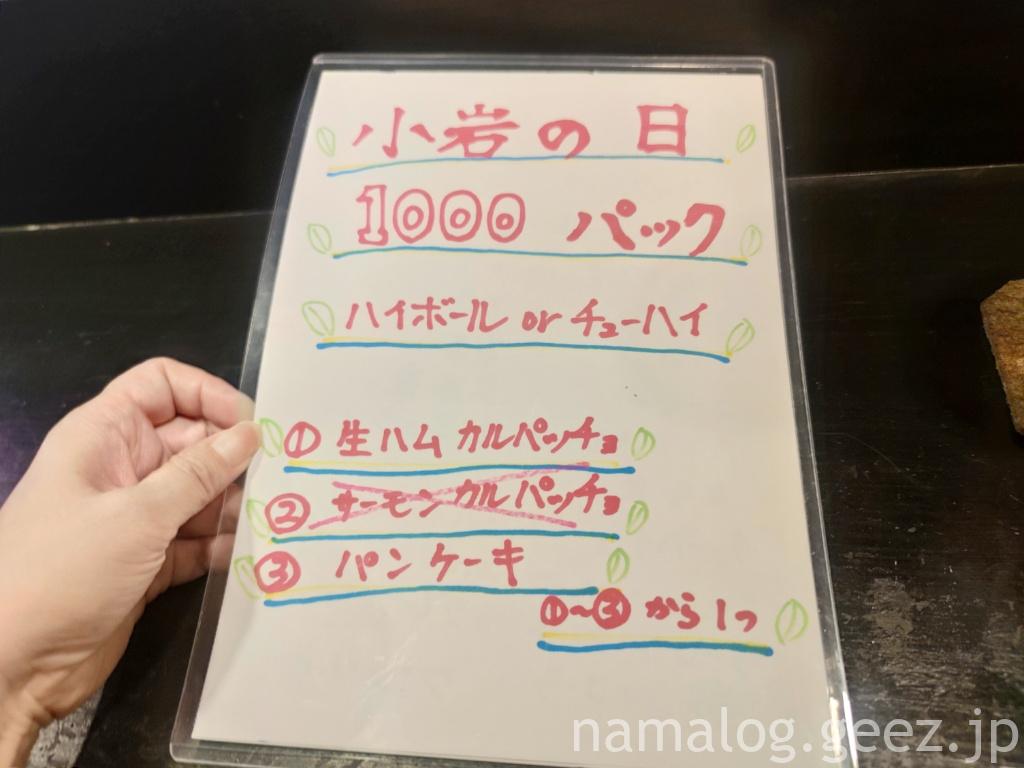 小岩の日
1000 パック
ハイボール or チューハイ
① 生ハム カルパッチョ
② サーモン カルパッチョ
③ パンケーキ
①~③ から 1つ
namalog.geez.jp